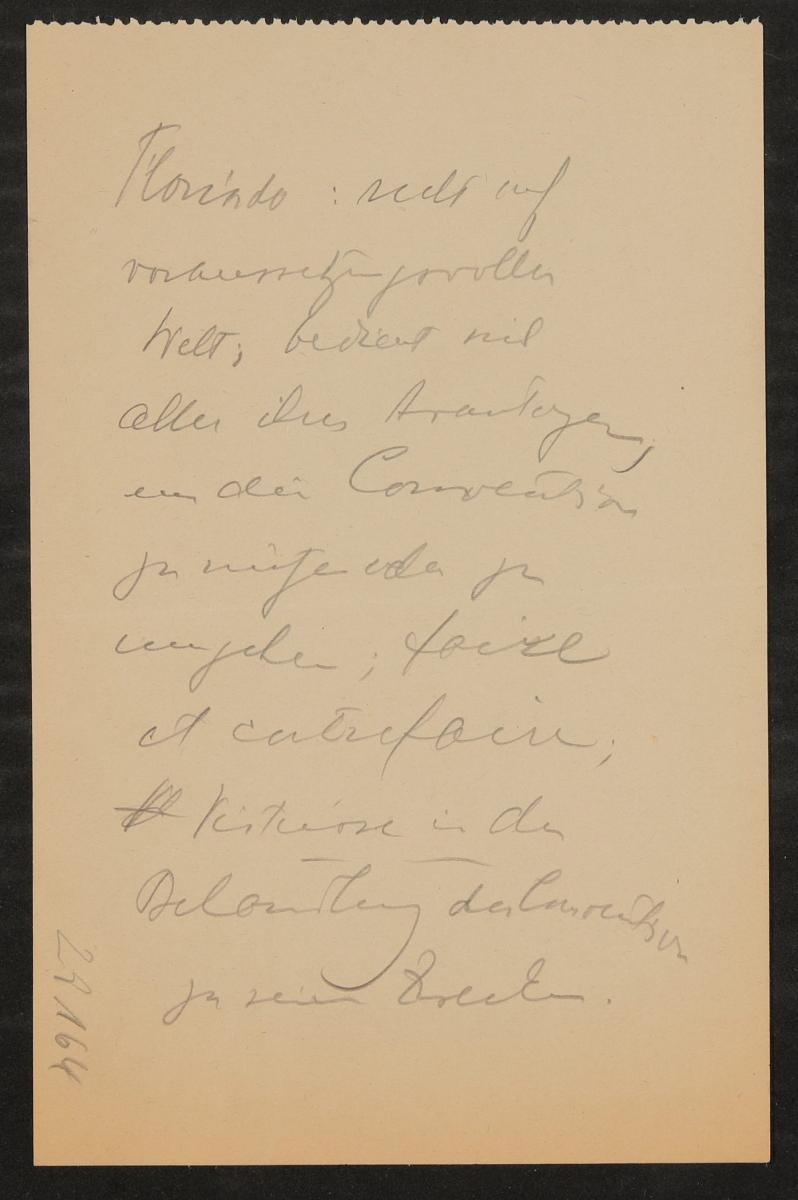 Florindo : ruht auf
voraussetzungsvoller
Welt; bedient sich
aller ihrer Avantagen,
um die Convention
zu nützen oder zu
umgehen; faire
et contrefaire;
Virtuose in der
Behandlung der Convention
zu seinen Zwecken.
29164